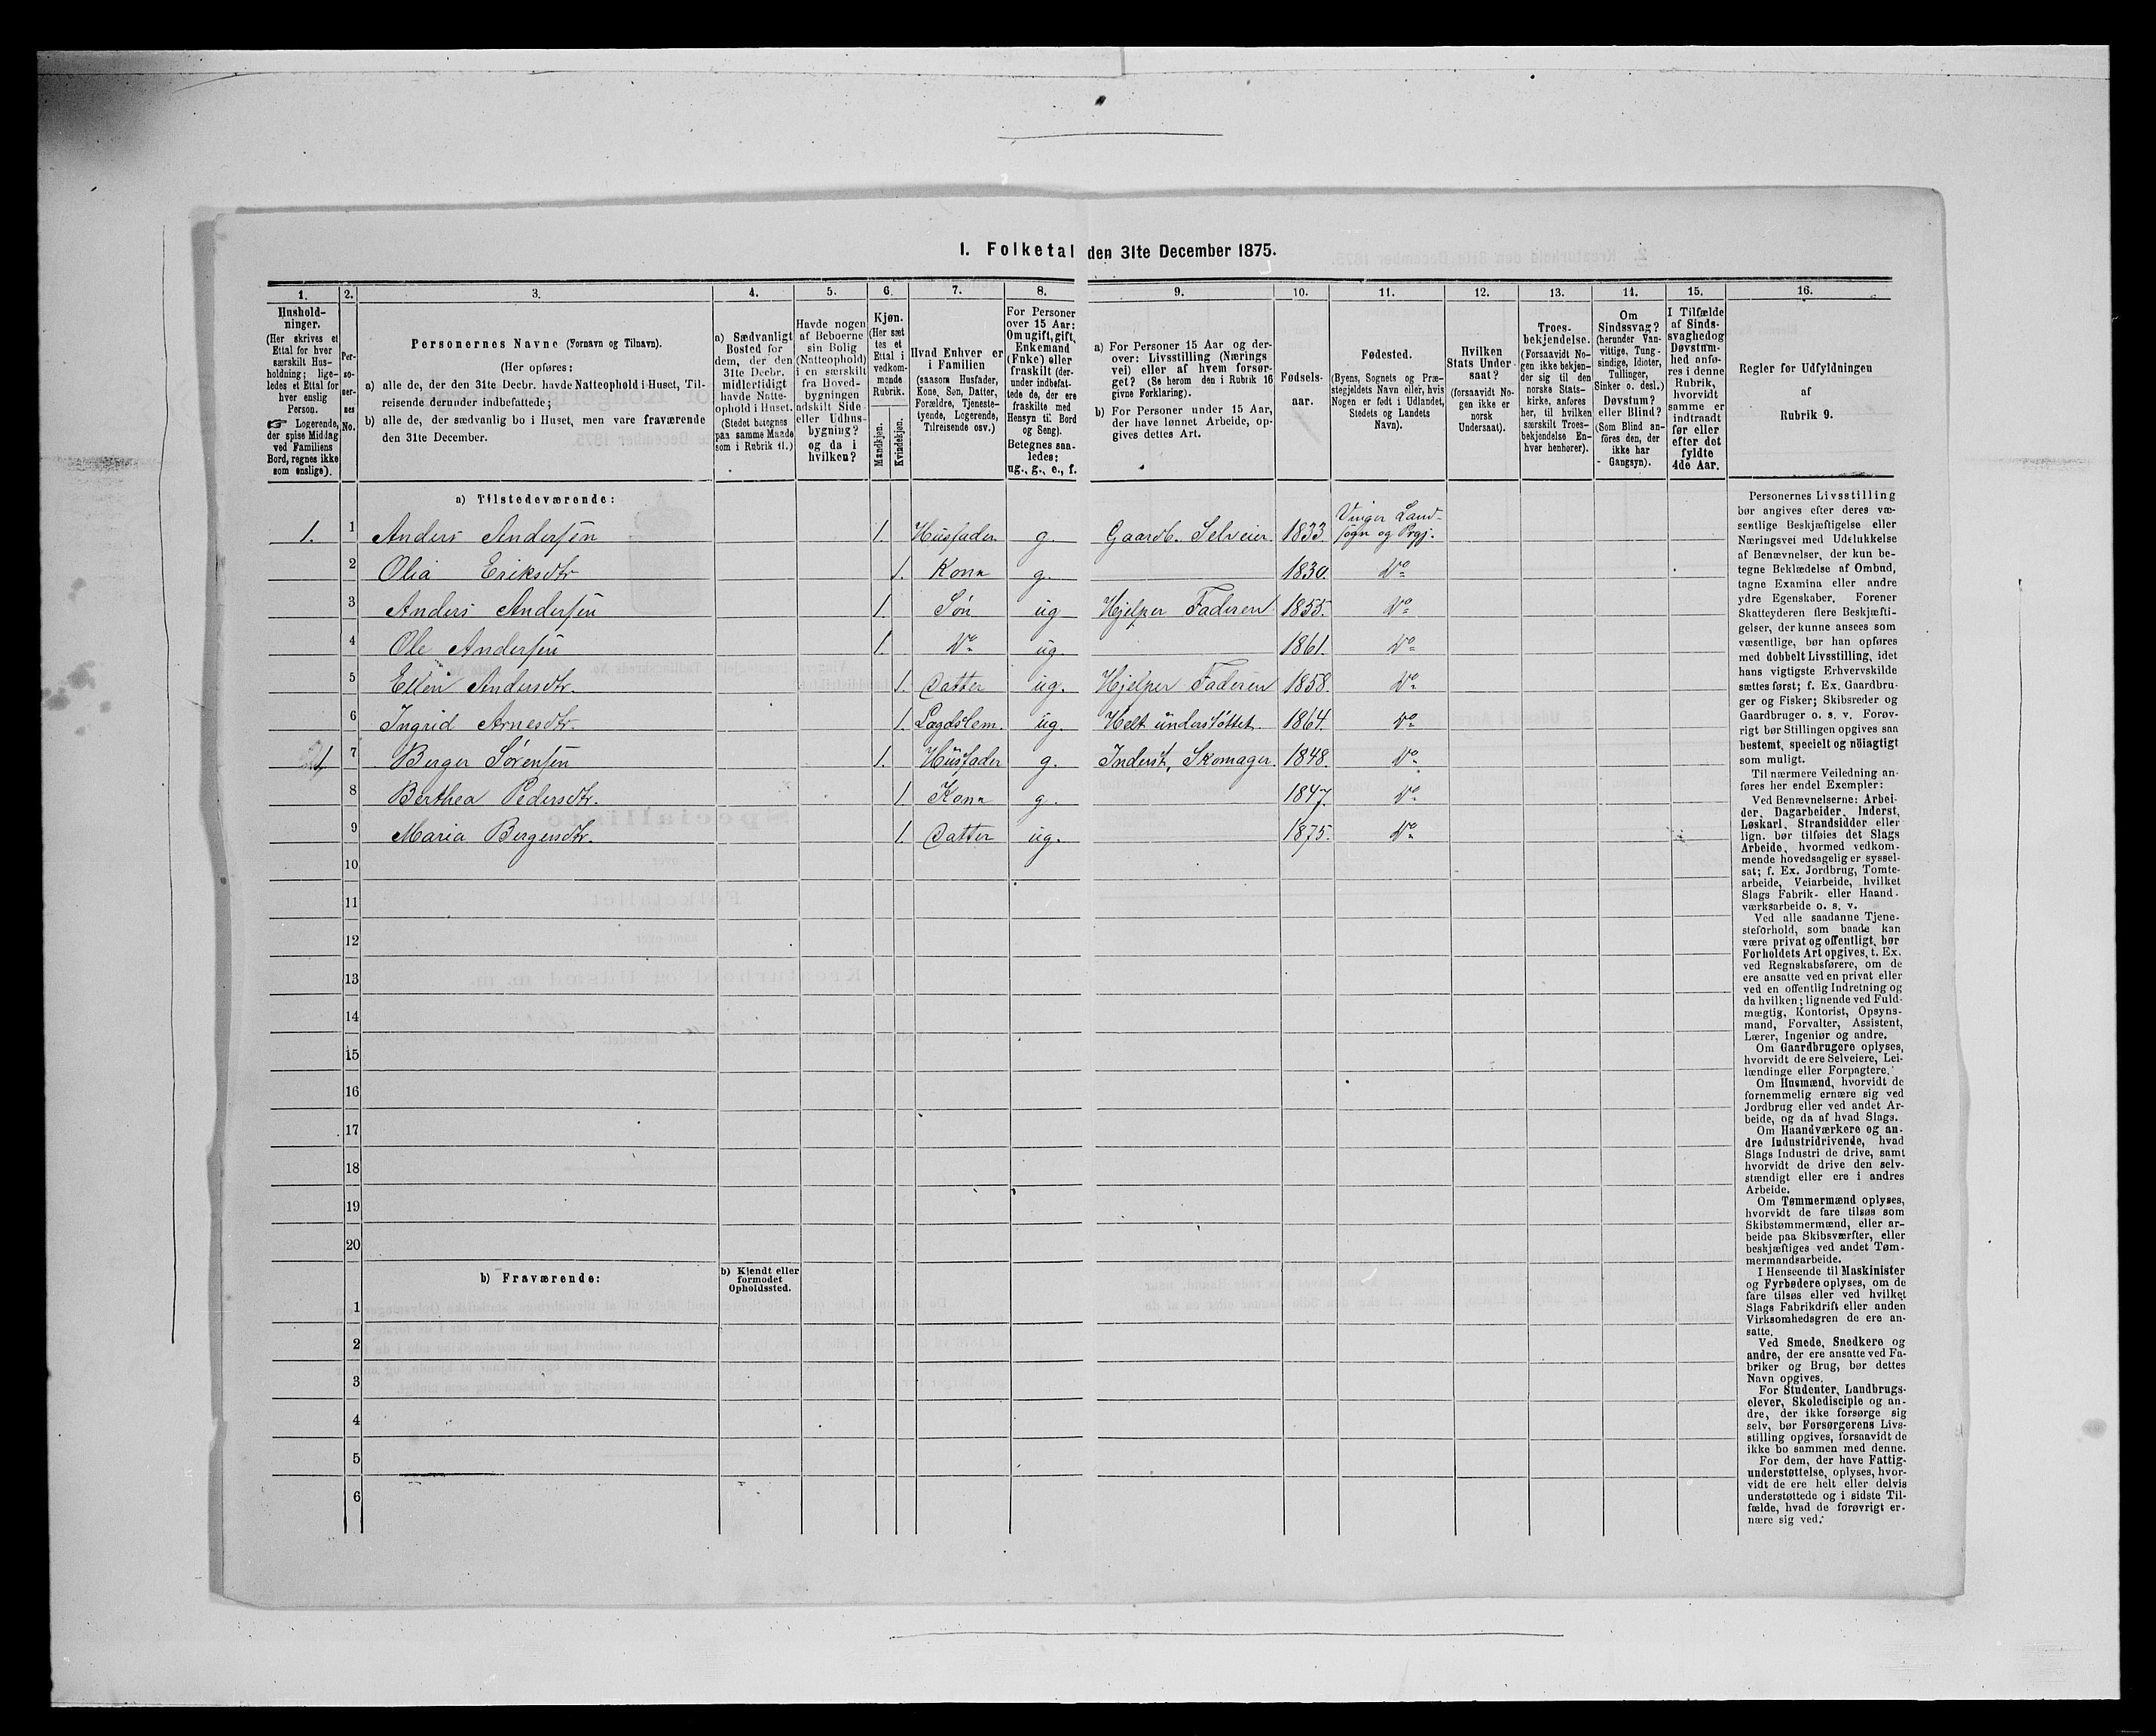 1. Folketal den 31te December 1875.
1. 2. 3. 4. 5. 6. 7. 8. 9. 10. 11. 12. 13. 14. 15. 16.
Hushold-
ninger.
(Her skrives et
Ettal for hver
særskilt Hus-
holdning; lige-
ledes et Ettal for
hver enslig
Person.
☞ Logerende,
der spise Middag
ved Familiens
Bord, regnes ikke
som enslige).
Per-
so-
ner-
nes
No.
Personernes Navne (Fornavn og Tilnavn).
(Her opføres:
a) alle de, der den 31te Decbr. havde Natteophold i Huset, Til-
reisende derunder indbefattede;
b) alle de, der sædvanlig bo i Huset, men vare fraværende
den 31te December.
a) Sædvanligt
Bosted for
dem, der den
31te Decbr.
midlertidigt
havde Natte-
ophold i Huset.
(Stedet betegnes
paa samme Maade
som i Rubrik 11.)
Havde nogen
af Beboerne
sin Bolig
(Natteophold)
i en særskilt
fra Hoved-
bygningen
adskilt Side-
eller Udhus-
bygning?
og da i
hvilken?
Kjøn.
(Her sæt-
tes et
Ettal i
vedkom-
mende
Rubrik.
Mandkjøn.
Kvindekjøn.
Hvad Enhver er
i Familien
(saasom Husfader,
Kone, Søn, Datter,
Forældre, Tjeneste-
tyende, Logerende,
Tilreisende osv.)
For Personer
over 15 Aar:
Om ugift, gift,
Enkemand
(Enke) eller
fraskilt (der-
under indbefat-
tede de, der ere
fraskilte med
Hensyn til Bord
og Seng).
Betegnes saa-
ledes:
ug., g., e., f.
a) For Personer 15 Aar og der-
over: Livsstilling (Nærings-
vei) eller af hvem forsør-
get? (Se herom den i Rubrik 16
givne Forklaring).
b) For Personer under 15 Aar,
der have lønnet Arbeide, op-
gives dettes Art.
Fødsels-
aar.
Fødested.
(Byens, Sognets og Præ-
stegjeldets Navn eller, hvis
Nogen er født i Udlandet,
Stedets og Landets
Navn).
Hvilken
Stats Under-
saat?
(forsaavidt No-
gen ikke er
norsk
Undersaat).
Troes-
bekjendelse.
(Forsaavidt No-
gen ikke bekjen-
der sig til den
norske Stats-
kirke, anføres
her, til hvilken
særskilt Troes-
bekjendelse En-
hver henhører).
Om
Sindssvag?
(herunder Van-
vittige, Tung-
sindige, Idioter,
Tullinger,
Sinker o. desl.)
Døvstum?
eller Blind?
(Som Blind an-
føres den, der
ikke har
Gangsyn).
I Tilfælde
af Sinds-
svaghed og
Døvstum-
hed anfø-
res i denne
Rubrik,
hvorvidt
samme er
indtraadt
før eller
efter det
fyldte
4de Aar.
Regler for Udfyldningen
af
Rubrik 9.
a) Tilstedeværende:
1. 1 Anders Andersen 1. Husfader g. Gaardb. Selveier. 1833. Vinger Land-
sogn og Prgj.
2 Olia Eriksdtr 1. Kone g. 1830. Do
3 Anders Andersen 1. Søn ug Hjelper Faderen 1855. Do
4 Ole Andersen 1. Do ug. 1861. Do
5 Ellen Andersdtr. 1. Datter ug. Hjelper Faderen 1858. Do
6 Ingrid Arnesdtr. 1. Lægdslem. ug. Helt understöttet. 1864. Do
1 7 Berger Sørensen 1. Husfader g. Inderst, Skomager. 1848. Do
8 Berthea Pedersdtr. 1. Kone g. 1847. Do
9 Maria Bergersdtr. 1. Datter ug. 1875. Do
10
11
12
13
14
15
16
17
18
19
20
b) Fraværende:
b) Kjendt eller
formodet
Opholdssted.
1
2
3
4
5
6
Personernes Livsstilling
bør angives efter deres væ-
sentlige Beskjæftigelse eller
Næringsvei med Udelukkelse
af Benævnelser, der kun be-
tegne Beklædelse af Ombud,
tagne Examina eller andre
ydre Egenskaber. Forener
Skatteyderen flere Beskjæfti-
gelser, der kunne ansees som
væsentlige, bør han opføres
med dobbelt Livsstilling, idet
hans vigtigste Erhvervskilde
sættes først; f. Ex. Gaardbru-
ger og Fisker; Skibsreder og
Gaardbruger o. s. v. Forøv-
rigt bør Stillingen opgives saa
bestemt, specielt og nöiagtigt
som muligt.
Til nærmere Veiledning an-
føres her endel Exempler:
Ved Benævnelserne: Arbei-
der, Dagarbeider, Inderst,
Løskarl, Strandsidder eller
lign. bør tilføies det Slags
Arbeide, hvormed vedkom-
mende hovedsagelig er syssel-
sat; f. Ex. Jordbrug, Tomte-
arbeide, Veiarbeide, hvilket
Slags Fabrik- eller Haand-
værksarbeide o. s. v.
Ved alle saadanne Tjene-
steforhold, som baade kan
være privat og offentligt, bør
Forholdets Art opgives, t. Ex.
ved Regnskabsførere, om de
ere ansatte ved en privat eller
ved en offentlig Indretning og
da hvilken; lignende ved Fuld-
mægtig, Kontorist, Opsyns-
mand, Forvalter, Assistent,
Lærer, Ingeniør og andre.
Om Gaardbrugere oplyses,
hvorvidt de ere Selveiere, Lei-
lændinge eller Forpagtere.
Om Husmænd, hvorvidt de
fornemmelig ernære sig ved
Jordbrug eller ved andet Ar-
beide, og da af hvad Slags.
Om Haandværkere og an-
dre Industridrivende, hvad
Slags Industri de drive, samt
hvorvidt de drive den selv-
stændigt eller ere i andres
Arbeide.
Om Tømmermænd oplyses,
hvorvidt de fare tilsøs som
Skibstømmermænd, eller ar-
beide paa Skibsværfter, eller
beskjæftiges ved andet Tøm-
mermandsarbeide.
I Henseende til Maskinister
og Fyrbødere oplyses, om de
fare tilsøs eller ved hvilket
Slags Fabrikdrift eller anden
Virksomhedsgren de ere an-
satte.
Ved Smede, Snedkere og
andre, der ere ansatte ved Fa-
briker og Brug, bør dettes
Navn opgives.
For Studenter, Landbrugs-
elever, Skoledisciple og an-
dre, der ikke forsørge sig
selv, bør Forsørgerens Livs-
stilling opgives, forsaavidt de
ikke bo sammen med denne.
For dem, der have Fattig-
understøttelse, oplyses, hvor-
vidt de ere helt eller delvis
understøttede og i sidste Til-
fælde, hvad de forøvrigt er-
nære sig ved.